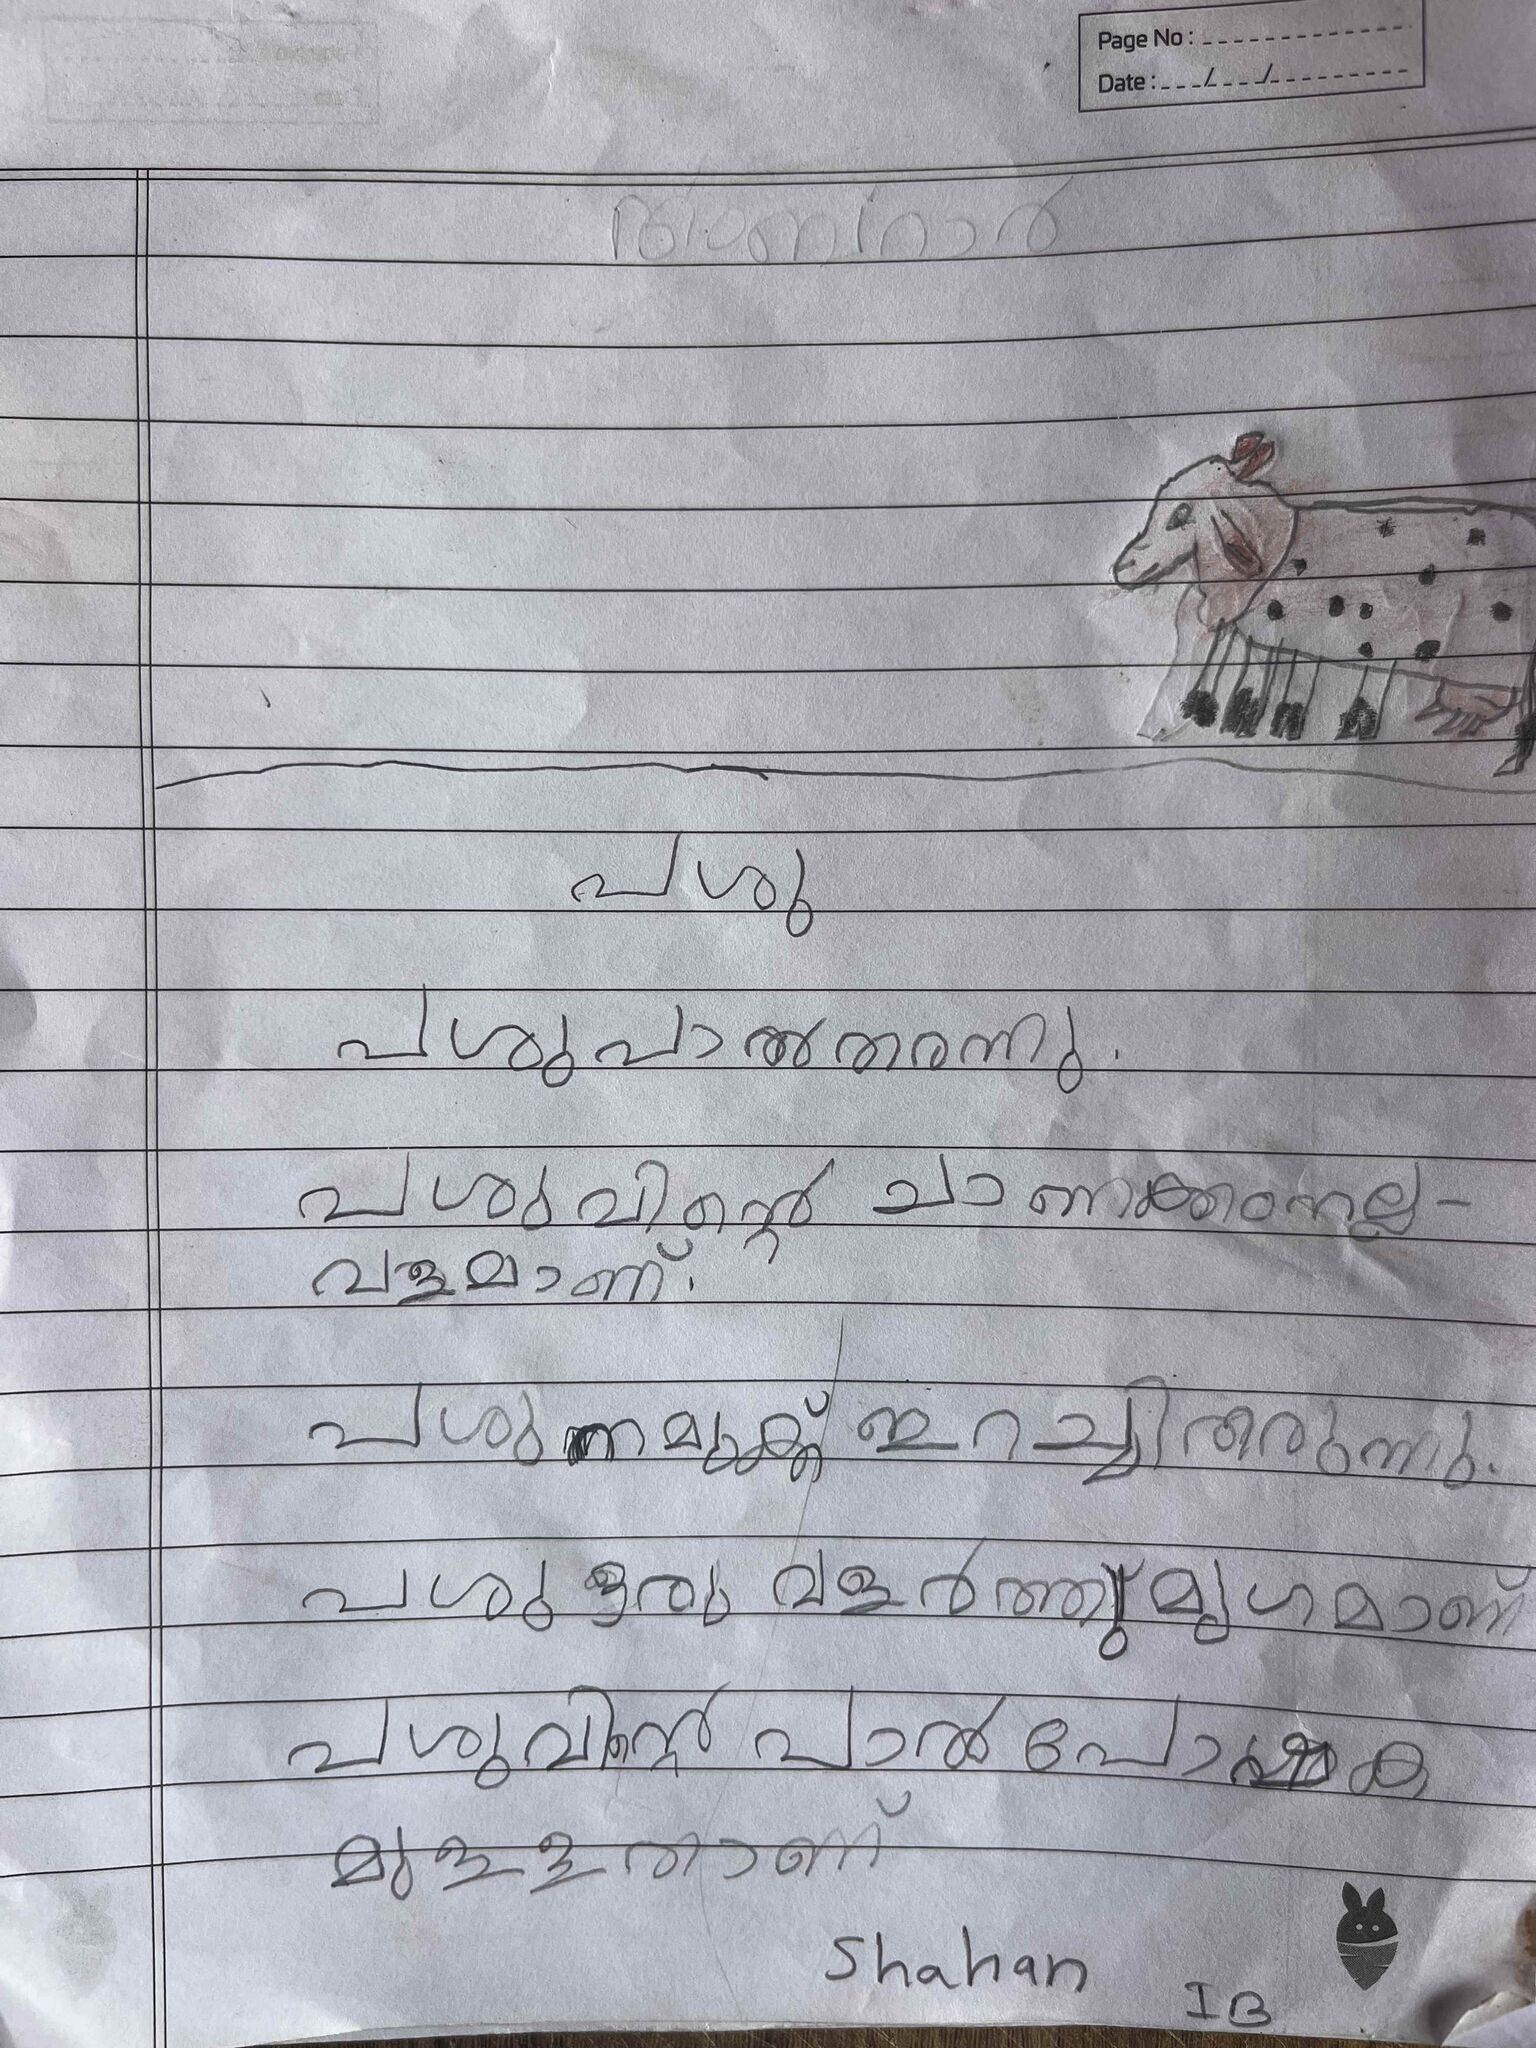 Page No :
Date :
പശു
പശു പാൽ തരന്നു.
പശുവിൻ്റെ ചാണകം നല്ല-
വളമാണ്.
പശു നമുക്ക് ഇറച്ചി തരുന്നു.
പശു ഒരു വളർത്തു മൃഗമാണ്
പശുവിൻ്റെ പാൽ പോഷക
മുള്ളതാണ്
Shahan
I B